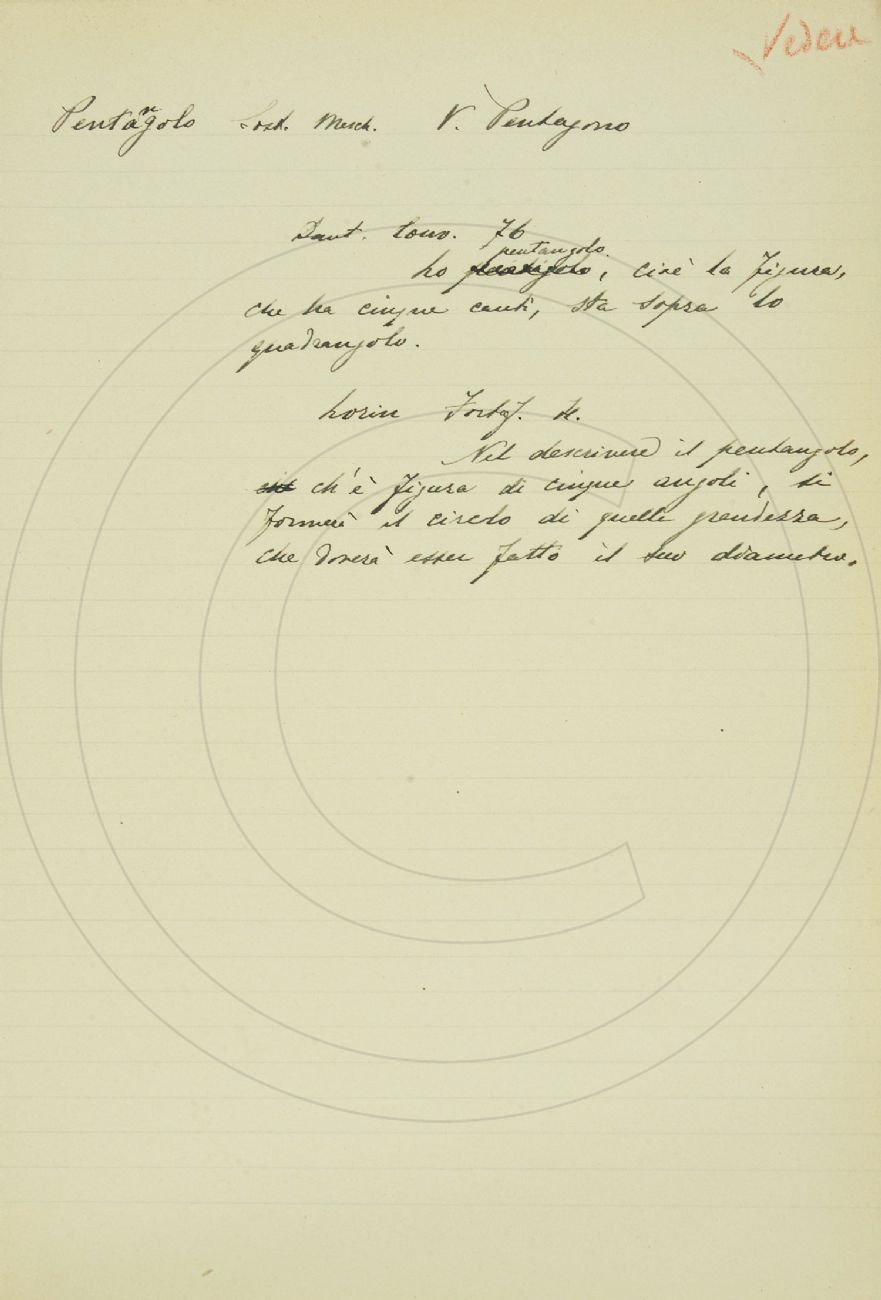 Vedere
Pentangolo Sost. Masch. V. Pentagono
Dant. Conv. 76
pentangolo
Lo, cioè la figura,
che ha cinque canti, sta sopra lo
quadrangolo.
Lorin Fortif. 11.
Nel descrivere il pentangolo,
ch'è figura di cinque angoli, si
formerà il circolo di quella grandezza,
che doverà esser fatto il suo diametro.